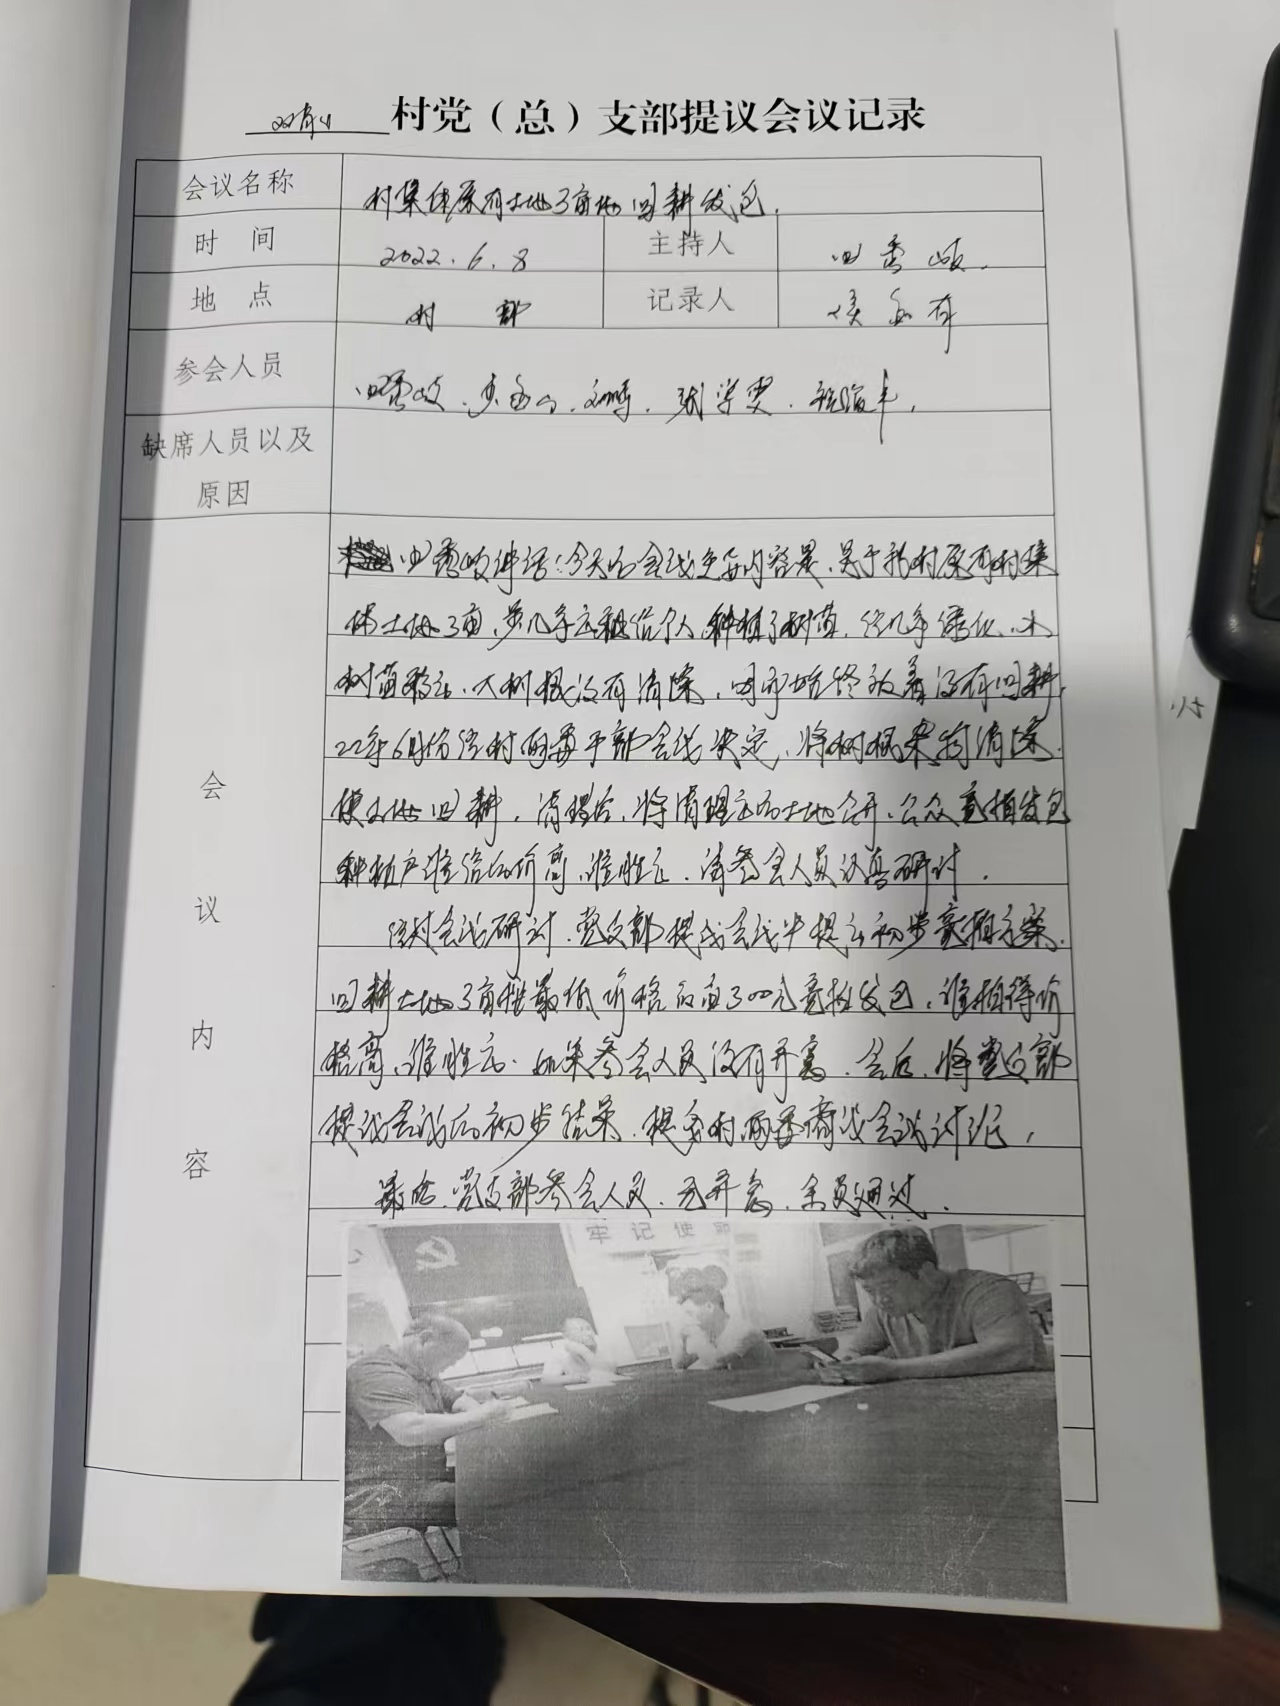 村党（总）支部提议会议记录
会议名称 村集体原有土地3亩地回耕发包.
时 间 2022.6.8 主持人
地 点 村 部 记录人
参会人员 张学
缺席人员以及
原因
会议内容
讲话:今天的会议主要内容是,关于我村原有村集
体土地3亩,前几年个人种植了树苗,
树苗移走,大树根没有清除,没有回耕,
22年6月份经村两委干部会议决定,将树根杂物清除
使土地回耕,清理后,将清理出的土地公开,公众竞拍发包
种植户谁给的价高,谁胜出.请参会人员认真研讨.
经村会议研讨,党支部提议会议中提出初步竞拍方案.
回耕土地3亩按最低价格300元竞拍发包,谁拍得价
格高,谁胜出.如果参会人员没有弃意,会后,将党支部
提议会议的初步结果,提交村两委商议会议讨论,
最后,党支部参会人员,无弃意,全员通过.
牢记使